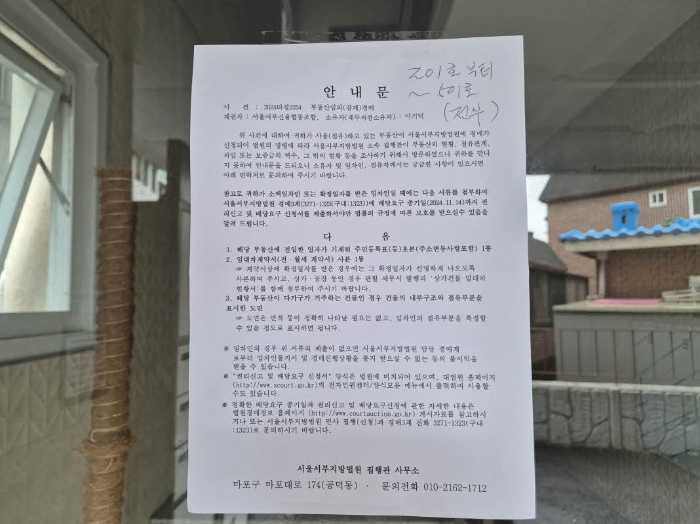 안 내 문
201호부터
~ 501호
(전부)
사 건 : 2024타경2254 부동산임의(강제)경매
채권자 : 서울서부신용협동조합, 소유자(채무자겸소유자) : 이기덕
위 사건에 대하여 귀하가 사용(점유)하고 있는 부동산이 서울서부지방법원에 경매가
신청되어 법원의 명령에 따라 서울서부지방법원 소속 집행관이 부동산의 현황, 점유관계,
차임 또는 보증금의 액수, 그 밖의 현황 등을 조사하기 위해서 방문하였으나 귀하를 만나
지 못하여 안내문을 드리오니 소유자 및 임차인, 점유자께서는 궁금한 사항이 있으시면
아래 연락처로 문의하여 주시기 바랍니다.
참고로 귀하가 소액임차인 또는 확정일자를 받은 임차인일 때에는 다음 서류를 첨부하여
서울서부지방법원 경매3계(3271-1323(구내:1323))에 배당요구 종기일(2024.11.14)까지 권
리신고 및 배당요구 신청서를 제출하셔야만 법률의 규정에 따른 보호를 받으실수 있음을
알려 드립니다.
다 음
1. 해당 부동산에 전입한 일자가 기재된 주민등록표(등)초본(주소변동사항포함) 1통
2. 임대차계약서(전ㆍ월세 계약서) 사본 1통
☞ 계약서상에 확정일자를 받은 경우에는 그 확정일자가 선명하게 나오도록
사본하여 주시고, 상가ㆍ공장 등인 경우 관할 세무서 발행의 '상가건물 임대차
현황서'를 함께 첨부하여 주시기 바랍니다.
3. 해당 부동산이 다가구가 거주하는 건물인 경우 건물의 내부구조와 점유부분을
표시한 도면
☞ 도면은 면적 등이 정확히 나타날 필요는 없고, 임차인의 점유부분을 특정할
수 있을 정도로 표시하면 됩니다.
※ 임차인의 경우 위 서류의 제출이 없으면 서울서부지방법원 담당 경매계
로부터 임차인통지서 및 경매진행상황을 통지 받으실 수 없는 등의 불이익을
받을 수 있습니다.
※ "권리신고 및 배당요구 신청서" 양식은 법원에 비치되어 있으며, 대법원 홈페이지
(http://www.scourt.go.kr)의 전자민원센터/양식모음 메뉴에서 출력하여 사용할
수도 있습니다.
※ 정확한 배당요구 종기일과 권리신고 및 배당요구신청에 관한 자세한 내용은
법원경매정보 홈페이지 (http://www.courtauction.go.kr) 게시자료를 참고하시
거나 또는 서울서부지방법원 민사 집행(신청)과 경매3계 전화 3271-1323(구내
:1323)로 문의하시기 바랍니다.
서울서부지방법원 집행관 사무소
마포구 마포대로 174(공덕동) · 문의전화 010-2162-1712